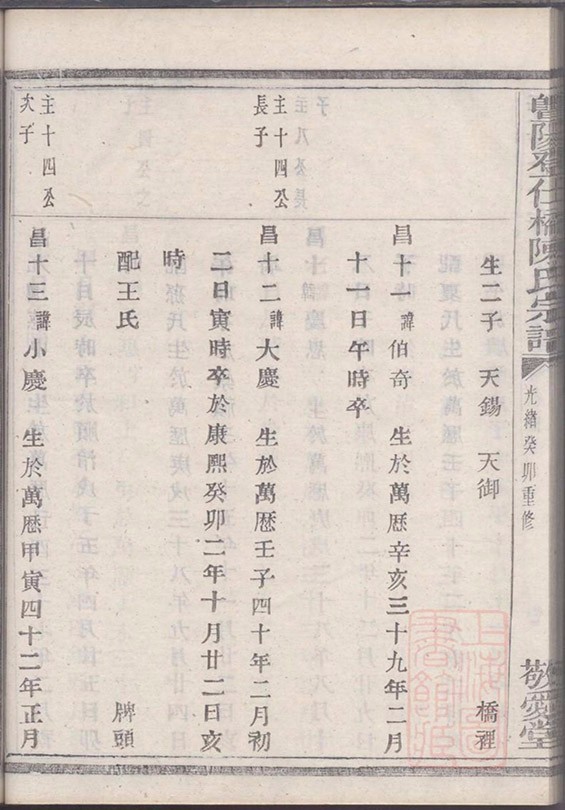 暨陽登仕橋陳氏宗譜
光緒癸卯重修
敬愛堂
生二子 天錫 天御 橋裡
昌十一諱伯奇 生於萬歷辛亥三十九年二月
十一日午時卒
主十四公
長子
昌十二諱大慶 生於萬歷壬子四十年二月初
二日寅時卒於康熙癸卯二年十月廿二日亥
時
配王氏 牌頭
主十四公
次子
昌十三諱小慶 生於萬歷甲寅四十二年正月